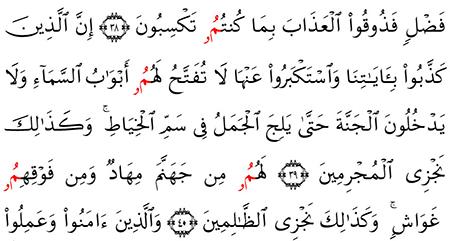 فَضْلٖ فَذُوقُواْ اُ۬لْعَذَابَ بِمَا كُنتُمُۥ تَكْسِبُونَ ۝٣٨ إِنَّ اَ۬لذِينَ
كَذَّبُواْ بِـَٔايَٰتِنَا وَاسْتَكْبَرُواْ عَنْهَا لَا تُفَتَّحُ لَهُمُۥ أَبْوَٰبُ اُ۬لسَّمَآءِ وَلَا
يَدْخُلُونَ اَ۬لْجَنَّةَ حَتَّىٰ يَلِجَ اَ۬لْجَمَلُ فِى سَمِّ اِ۬لْخِيَاطِۖ وَكَذَٰلِكَ
نَجْزِى اِ۬لْمُجْرِمِينَ ۝٣٩ لَهُمُۥ مِن جَهَنَّمَ مِهَادٞ وَمِن فَوْقِهِمُۥ
غَوَاشٖۖ وَكَذَٰلِكَ نَجْزِى اِ۬لظَّٰلِمِينَ ۝٤٠ وَالَّذِينَ ءَامَنُواْ وَعَمِلُواْ